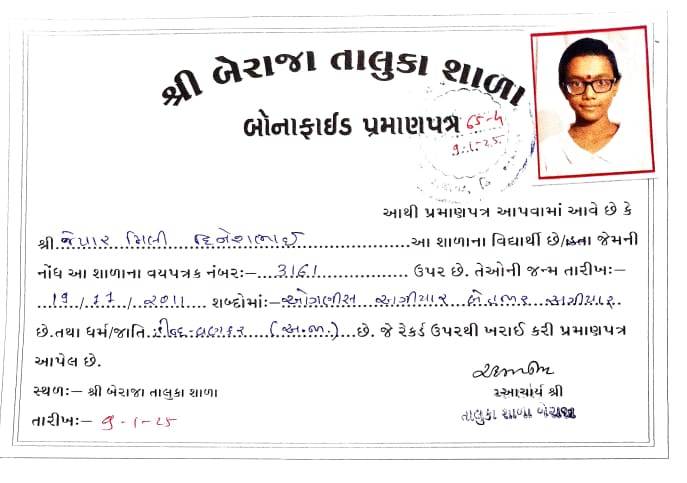 શ્રી બેરાજા તાલુકા શાળા
બોનાફાઈડ પ્રમાણપત્ર
65-4
9-1-25
આથી પ્રમાણપત્ર આપવામાં આવે છે કે
શ્રી જેપાર મિલી દિનેશભાઈ આ શાળાના વિદ્યાર્થી છે/હતા જેમની
નોંધ આ શાળાના વયપત્રક નંબર:– 3161 ઉપર છે. તેઓની જન્મ તારીખ:–
19/11/2011 શબ્દોમાં:– ઓગણીસ અગીયાર બેહજાર અગીયાર
છે.તથા ધર્મ/જાતિ હીન્દુ-વણકર (અ.જા.) છે. જે રેકર્ડ ઉપરથી ખરાઈ કરી પ્રમાણપત્ર
આપેલ છે.
સ્થળ:– શ્રી બેરાજા તાલુકા શાળા
આચાર્ય શ્રી
તારીખ:– 9-1-25
તાલુકા શાળા બેરાજા